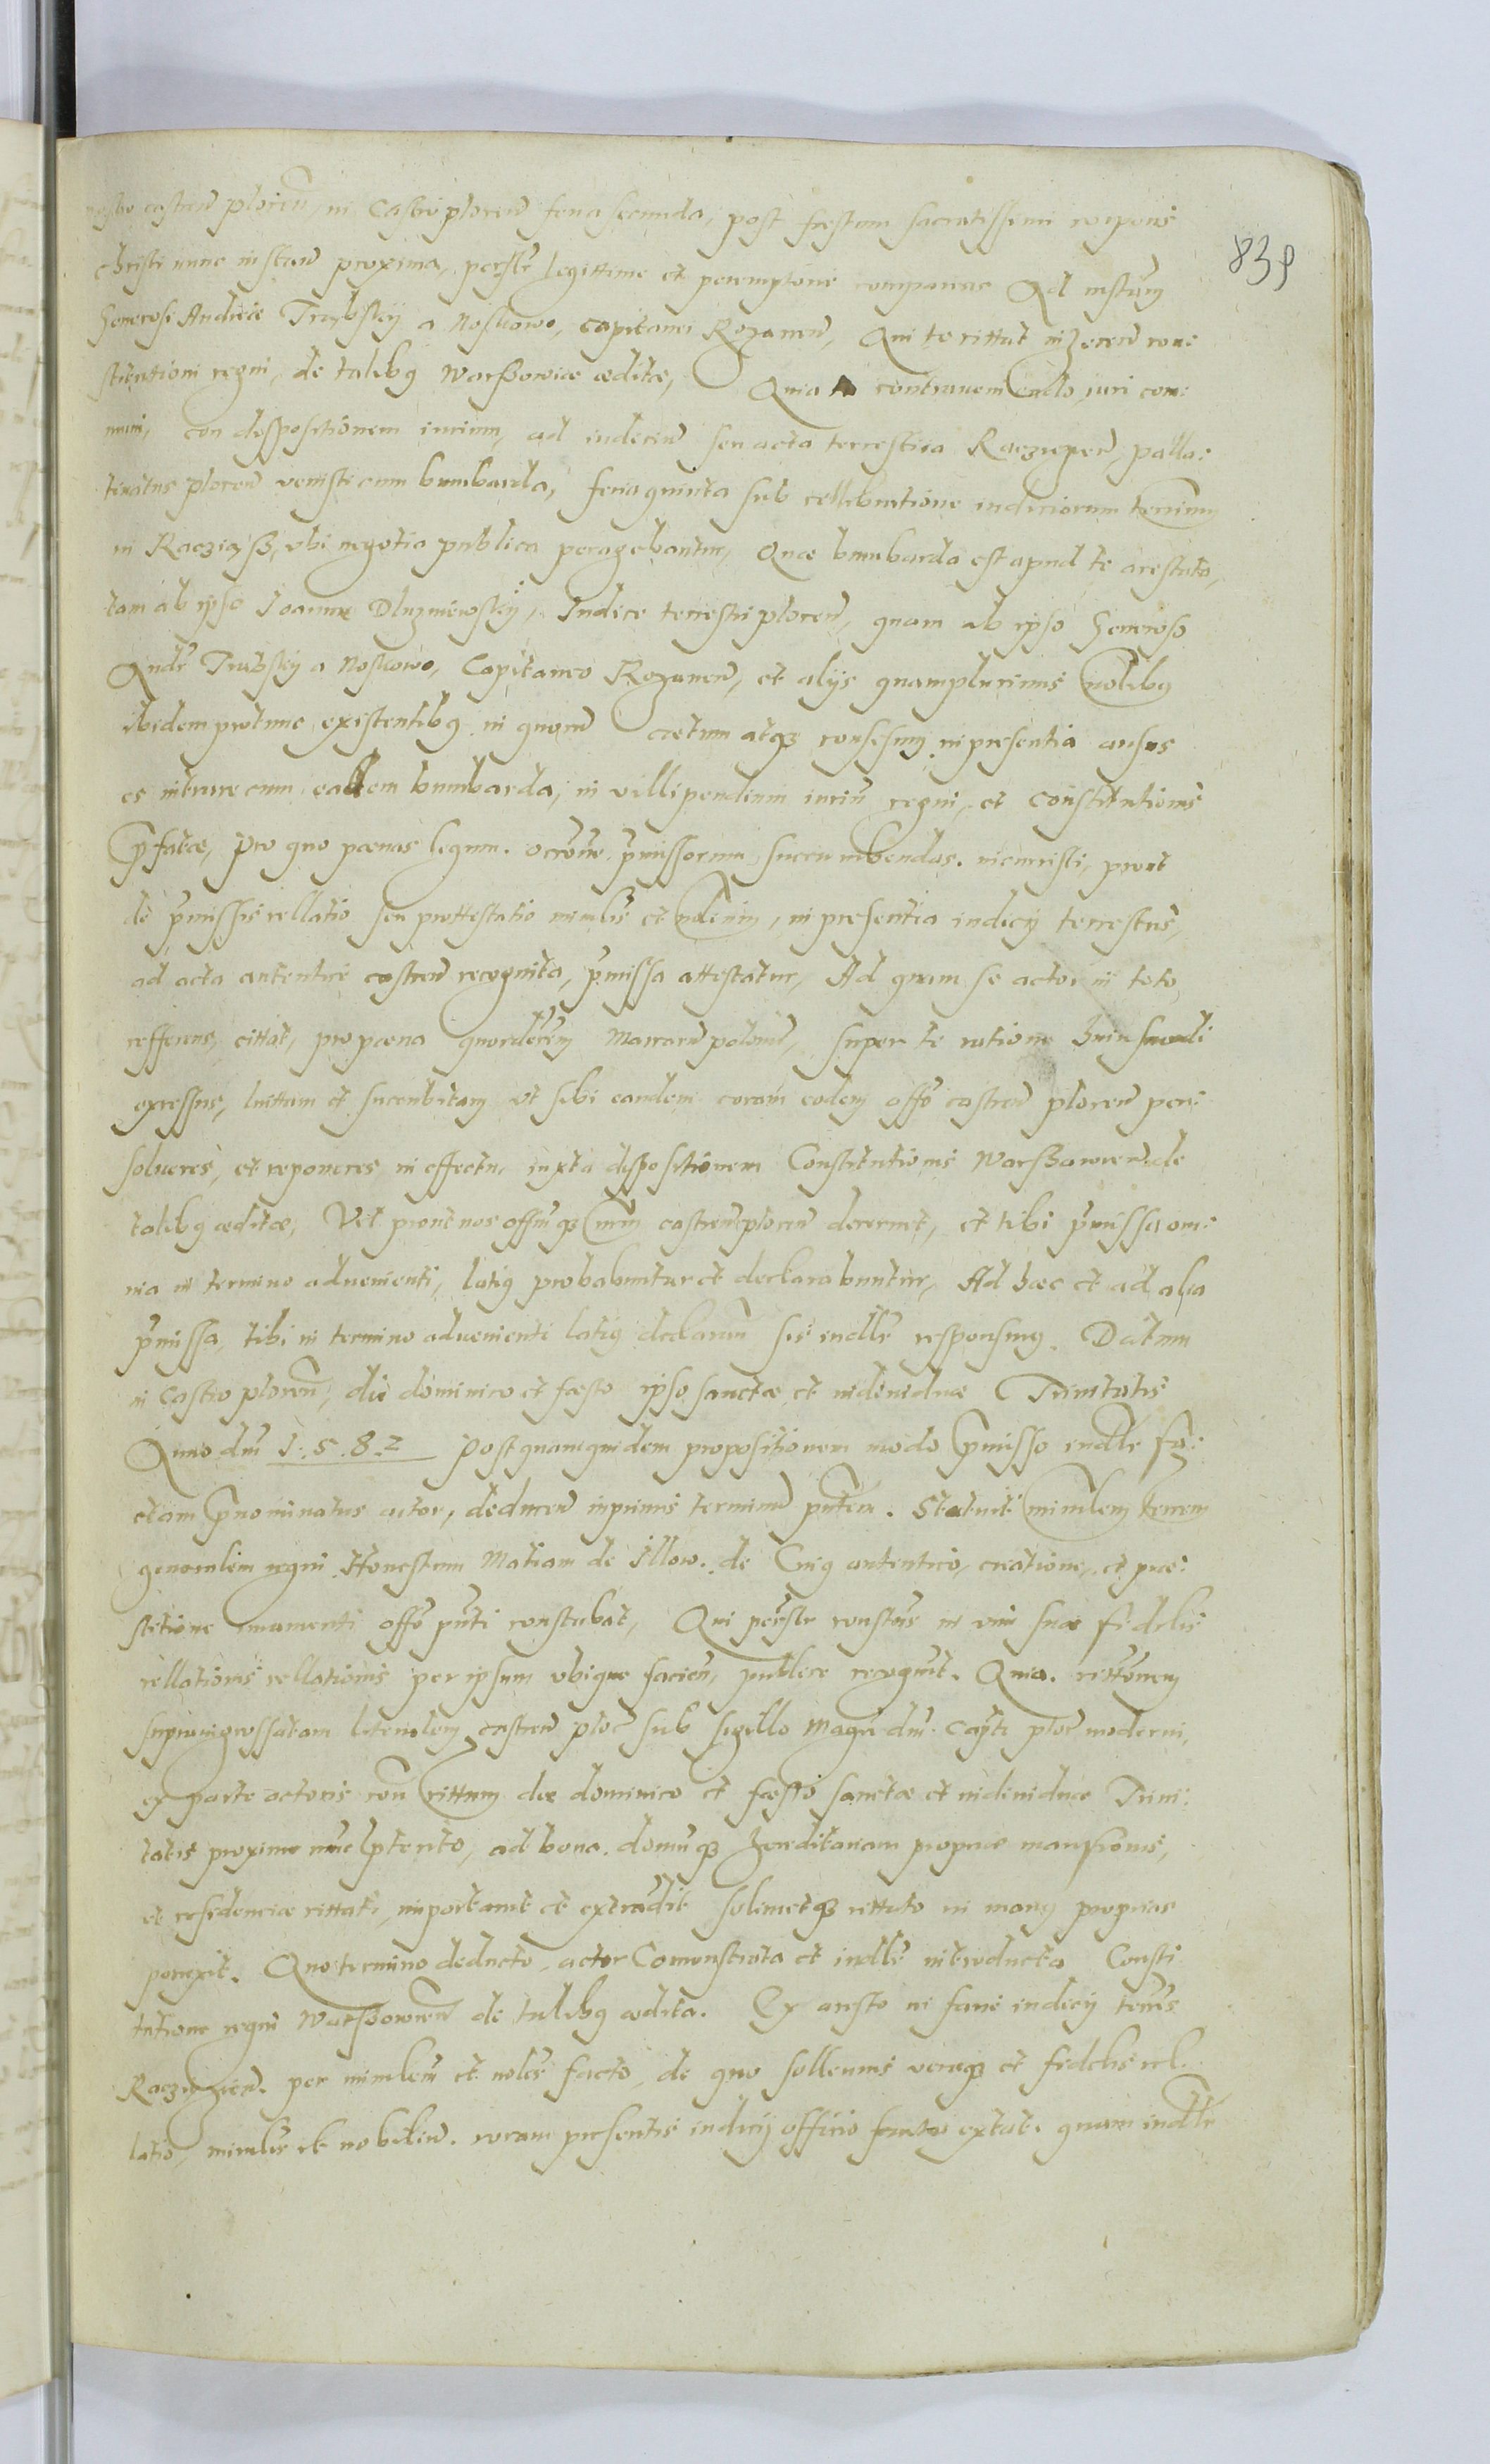 839
nostro castren plocen, in Castro plocen feria secunda, post festum sacratissimi corporis
Christi nunc instan proxima, persr legittime et peremptorie compareas Ad instam
Generosi Andreæ Trzbskij a Noskowo, Capitanei Rozanen, Qui te cittat inhæren con:
stitutioni regni, de talibq Warssowiæ æditæ, Quia contraveniendo, iuri com:
muni, con dispositionem iurium, ad iudicium seu acta terrestria Racziązen, palla:
tinatus plocen venisti cum bumbarda, feria quinta sub cellebratione iudiciorum terrium
in Racziąss, ubi negotia publica peragebantur, Quæ bumbarda est apud te arestata,
tam ab ipso Joanne Dluzniewskij, Judice terrestri plocen, quam ab ipso Generoso
Andr Trzbskij a Noskowo, Capitaneo Rozanen, et alijs quamplurimis nolibq
ibidem protunc existentibq in quorum cœtum atqz consesum in presentia ausus
es intrare cum eadem bumbarda, in villipendium iurium regni, et Constitutionis
prfatæ, pro quo pœnas legum. occone pmissorum succumbendas. incuristi, prout
de pmissis rellatio seu prottestatio minlis et nolium, in presentia iudicij terrestris,
ad acta autentice castren recognita, pmissa attestatur, Ad quam se actor in toto
refferens, cittat, pro pœna quordecem Marcarum polonic, super te ratione huiusmodi
excessus, luittam et sucubitam ut sibi eandem coram eodem offo castren plocen per:
solueres, et reponeres in effectu, iuxta dispositionem Constitutionis Warssowien de
talibq æditæ, Vel prout nos offmqz nrm castren plocen decernet, et tibi pmissa om:
nia in termino advenienti, latiq probabuntur et declarabuntur, Ad hæc et ad alia
pmissa, tibi in termino advenienti latiq declaran sis iudlr responsurq. Datum
in Castro plocen, die dominico et fæsto ipso sanctæ et individuæ Trinitatis
Anno dni 1.5.8.2 post quamquidem propositionem modo pmisso iudlr fa:
ctam pnominatus actor, deducen inprimis terminum pntem. Statuit minlem terrem
generalem regni Honestum Matiam de Illow. de Cuiq autentico, creatione, et præ:
stitione iuramenti offo pnti constabat, Qui persr constus in vim suæ fidelis
rellationis rellationis per ipsum ubique facien, publice recognit. Quia. cittonem
supraingrossatam literalem castren ploc sub sigillo Magci dni Capti ploc moderni,
ex parte actoris con cittum die dominico et fæsto sanctæ et individuæ Trini:
tatis proxime nunc pterito, ad bona. domumqz hæreditariam propriæ mansionis,
et residenciæ cittati, importavit et extradit solimetqz cittato in manq proprias
porrexit. Quo termino deducto, actor Comonstrata et iudlr introducta Consti
tutione regni Warssowien de talibq ædita. Ex aresto in fane iudicij terris
Racziązien. per minlem et noles facto, de quo sollennis veraqz et fidelis rel
latio, minlis et nobilium. coram presentis iudicij officio facta extat. quam iudlr